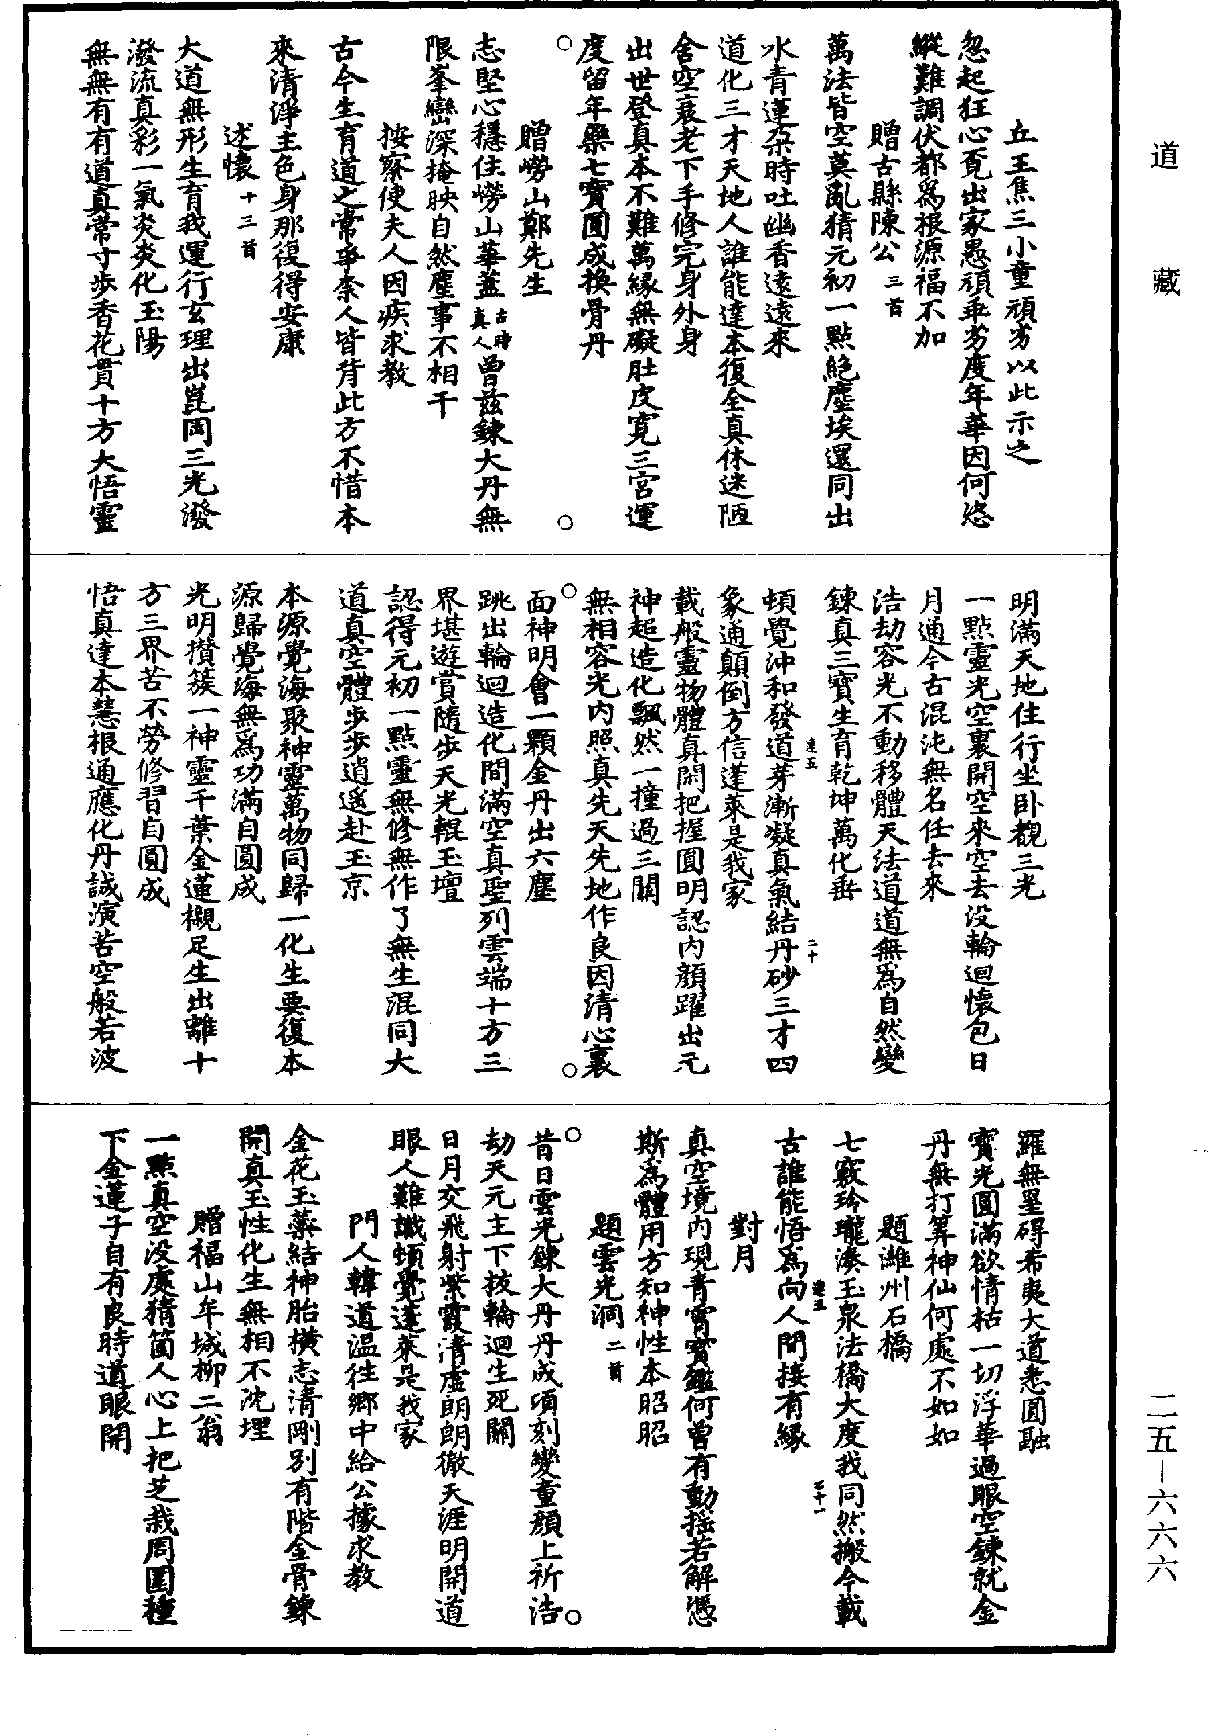 道藏
丘王焦三小童頑劣以此示之
忽起狂心覔出家愚頑乖劣度年華因何恣
縱難調伏都爲根源福不加
贈古縣陳公三首
萬法皆空莫亂猜元初一點絕塵埃還同出
水青蓮朶時吐幽香遠遠來
道化三才天地人誰能達本復全真休迷陋
舍空衰老下手修完身外身
出世登真本不難萬緣無礙肚皮寬三宮運
度留年藥七寶圓成換骨丹
贈嶗山鄭先生
志堅心穩住嶗山華蓋古時真人曾兹鍊大丹無
限峯巒深掩映自然塵事不相干
按察使夫人因疾求教
古今生育道之常爭柰人皆背此方不惜本
來清淨主色身那復得安康
述懷十三首
大道無形生育我運行玄理出崑岡三光潑
潑流真彩一氣炎炎化玉陽
無無有有道真常寸步香花貫十方大悟靈
明滿天地住行坐卧觀三光
一點靈光空裏開空來空去没輪迴懷包日
月通今古混沌無名任去來
浩劫容光不動移體天法道道無爲自然變
鍊真三寶生育乾坤萬化垂
頓覺沖和發道芽漸凝真氣結丹砂三才四
象通顛倒方信蓬萊是我家
載般靈物體真閑把握圓明認内顔躍出元
神超造化飄然一撞過三關
無相容光内照真先天先地作良因清心裏
面神明會一顆金丹出六塵
跳出輪迴造化間滿空真聖列雲端十方三
界堪遊賞隨步天光輥玉壇
認得元初一點靈無修無作了無生混同大
道真空體步步逍遥赴玉京
本源覺海聚神靈萬物同歸一化生要復本
源歸覺海無爲功滿自圓成
光明攢簇一神靈千葉金蓮襯足生出離十
方三界苦不勞修習自圓成
悟真達本慧根通應化丹誠演苦空般若波
羅無罣礙希夷大道悉圓融
寶光圓滿欲情枯一切浮華過眼空鍊就金
丹無打算神仙何處不如如
題濰州石橋
七竅玲瓏湊玉泉法橋大度我同然搬今載
古誰能悟爲向人間接有緣
對月
真空境内現青霄寶鑑何曾有動摇若解憑
斯爲體用方知神性本昭昭
題雲光洞二首
昔日雲光鍊大丹丹成頃刻變童顔上祈浩
劫天元主下拔輪迴生死關
日月交飛射紫霞清虛朗朗徹天涯明開道
眼人難識頓覺蓬萊是我家
門人韓道温徃鄉中給公據求教
金花玉蘂結神胎橫志清剛別有階金骨鍊
開真玉性化生無相不沈埋
贈福山年城柳二翁
一點真空没處猜箇人心上把芝栽周圍種
下金蓮子自有良時道眼開
二五－六六六